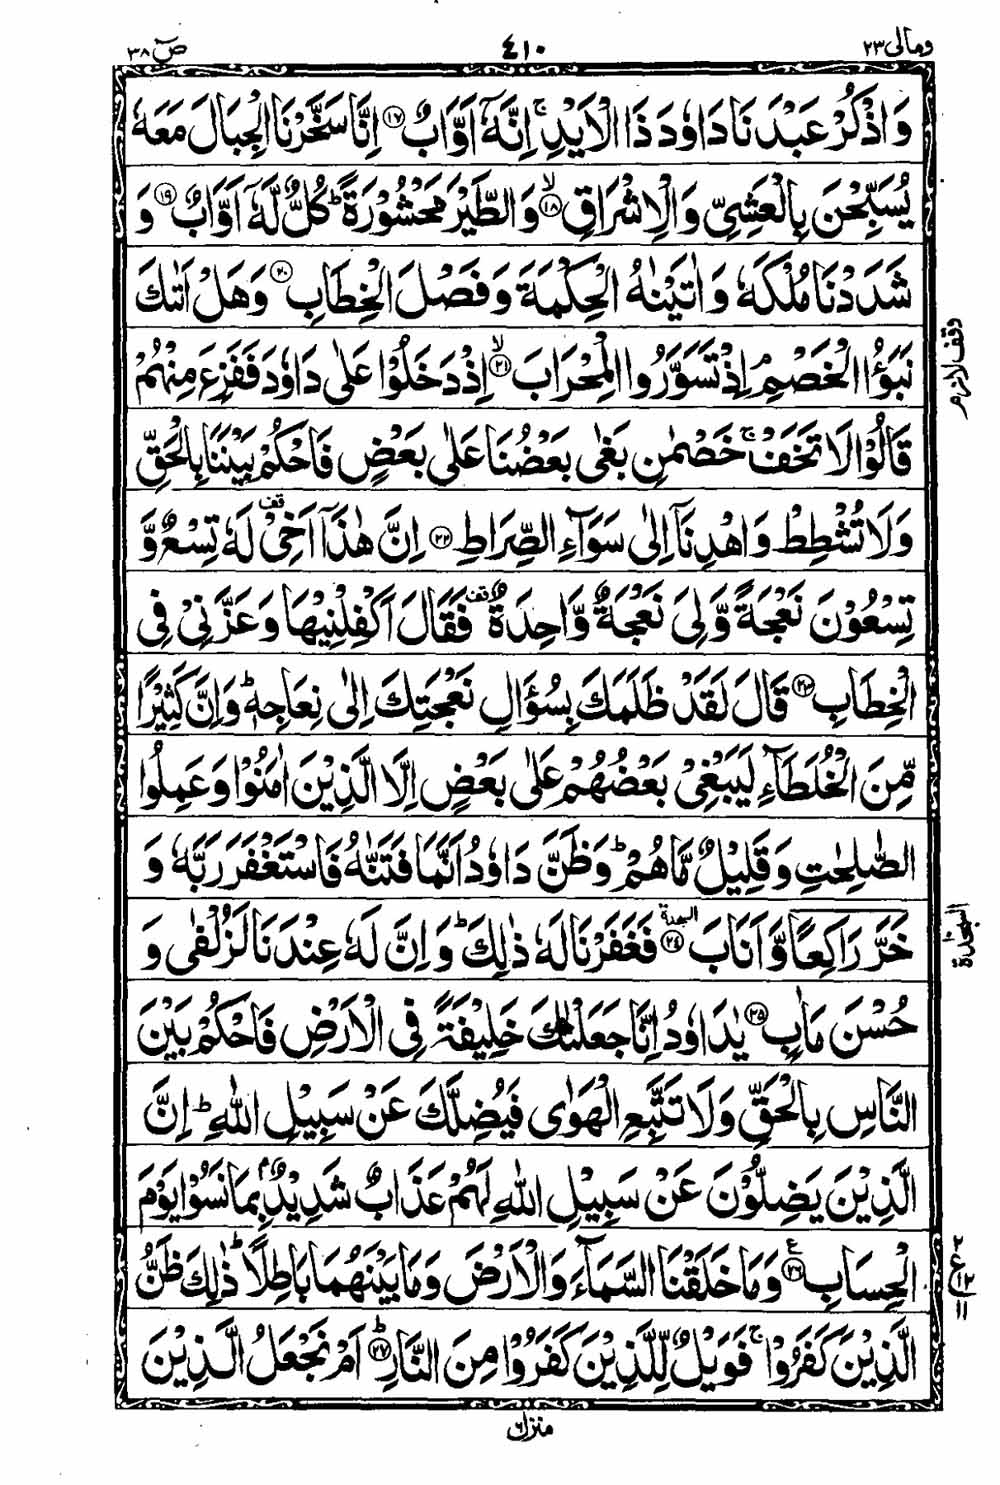 ومالی ٢٣
٤١٠
صٓ ٣٨
وَاذْكُرْ عَبْدَنَا دَاوٗدَ ذَا الْاَيْدِ ۚ اِنَّهٗٓ اَوَّابٌ ۝١٧ اِنَّا سَخَّرْنَا الْجِبَالَ مَعَهٗ
يُسَبِّحْنَ بِالْعَشِيِّ وَالْاِشْرَاقِ ۝١٨ۙ وَالطَّيْرَ مَحْشُوْرَةً ؕ كُلٌّ لَّهٗٓ اَوَّابٌ ۝١٩ وَ
شَدَدْنَا مُلْكَهٗ وَاٰتَيْنٰهُ الْحِكْمَةَ وَفَصْلَ الْخِطَابِ ۝٢٠ وَهَلْ اَتٰىكَ
نَبَؤُا الْخَصْمِ ۘ اِذْ تَسَوَّرُوا الْمِحْرَابَ ۝٢١ۙ اِذْ دَخَلُوْا عَلٰى دَاوٗدَ فَفَزِعَ مِنْهُمْ
وقف لازم
قَالُوْا لَا تَخَفْ ۚ خَصْمٰنِ بَغٰى بَعْضُنَا عَلٰى بَعْضٍ فَاحْكُمْ بَيْنَنَا بِالْحَقِّ
وَلَا تُشْطِطْ وَاهْدِنَآ اِلٰى سَوَآءِ الصِّرَاطِ ۝٢٢ اِنَّ هٰذَآ اَخِيْ قف لَهٗ تِسْعٌ وَّ
تِسْعُوْنَ نَعْجَةً وَّلِيَ نَعْجَةٌ وَّاحِدَةٌ قف فَقَالَ اَكْفِلْنِيْهَا وَعَزَّنِيْ فِي
الْخِطَابِ ۝٢٣ قَالَ لَقَدْ ظَلَمَكَ بِسُؤَالِ نَعْجَتِكَ اِلٰى نِعَاجِهٖ ؕ وَاِنَّ كَثِيْرًا
مِّنَ الْخُلَطَآءِ لَيَبْغِيْ بَعْضُهُمْ عَلٰى بَعْضٍ اِلَّا الَّذِيْنَ اٰمَنُوْا وَعَمِلُوا
الصّٰلِحٰتِ وَقَلِيْلٌ مَّا هُمْ ؕ وَظَنَّ دَاوٗدُ اَنَّمَا فَتَنّٰهُ فَاسْتَغْفَرَ رَبَّهٗ وَ
خَرَّ رَاكِعًا وَّاَنَابَ ۝٢٤ السجدة فَغَفَرْنَا لَهٗ ذٰلِكَ ؕ وَاِنَّ لَهٗ عِنْدَنَا لَزُلْفٰى وَ
السجدة
حُسْنَ مَاٰبٍ ۝٢٥ يٰدَاوٗدُ اِنَّا جَعَلْنٰكَ خَلِيْفَةً فِي الْاَرْضِ فَاحْكُمْ بَيْنَ
النَّاسِ بِالْحَقِّ وَلَا تَتَّبِعِ الْهَوٰى فَيُضِلَّكَ عَنْ سَبِيْلِ اللّٰهِ ؕ اِنَّ
الَّذِيْنَ يَضِلُّوْنَ عَنْ سَبِيْلِ اللّٰهِ لَهُمْ عَذَابٌ شَدِيْدٌۢ بِمَا نَسُوْا يَوْمَ
الْحِسَابِ ۝٢٦ ع وَمَا خَلَقْنَا السَّمَآءَ وَالْاَرْضَ وَمَا بَيْنَهُمَا بَاطِلًا ؕ ذٰلِكَ ظَنُّ
الَّذِيْنَ كَفَرُوْا ۚ فَوَيْلٌ لِّلَّذِيْنَ كَفَرُوْا مِنَ النَّارِ ۝٢٧ؕ اَمْ نَجْعَلُ الَّذِيْنَ
منزل ٦